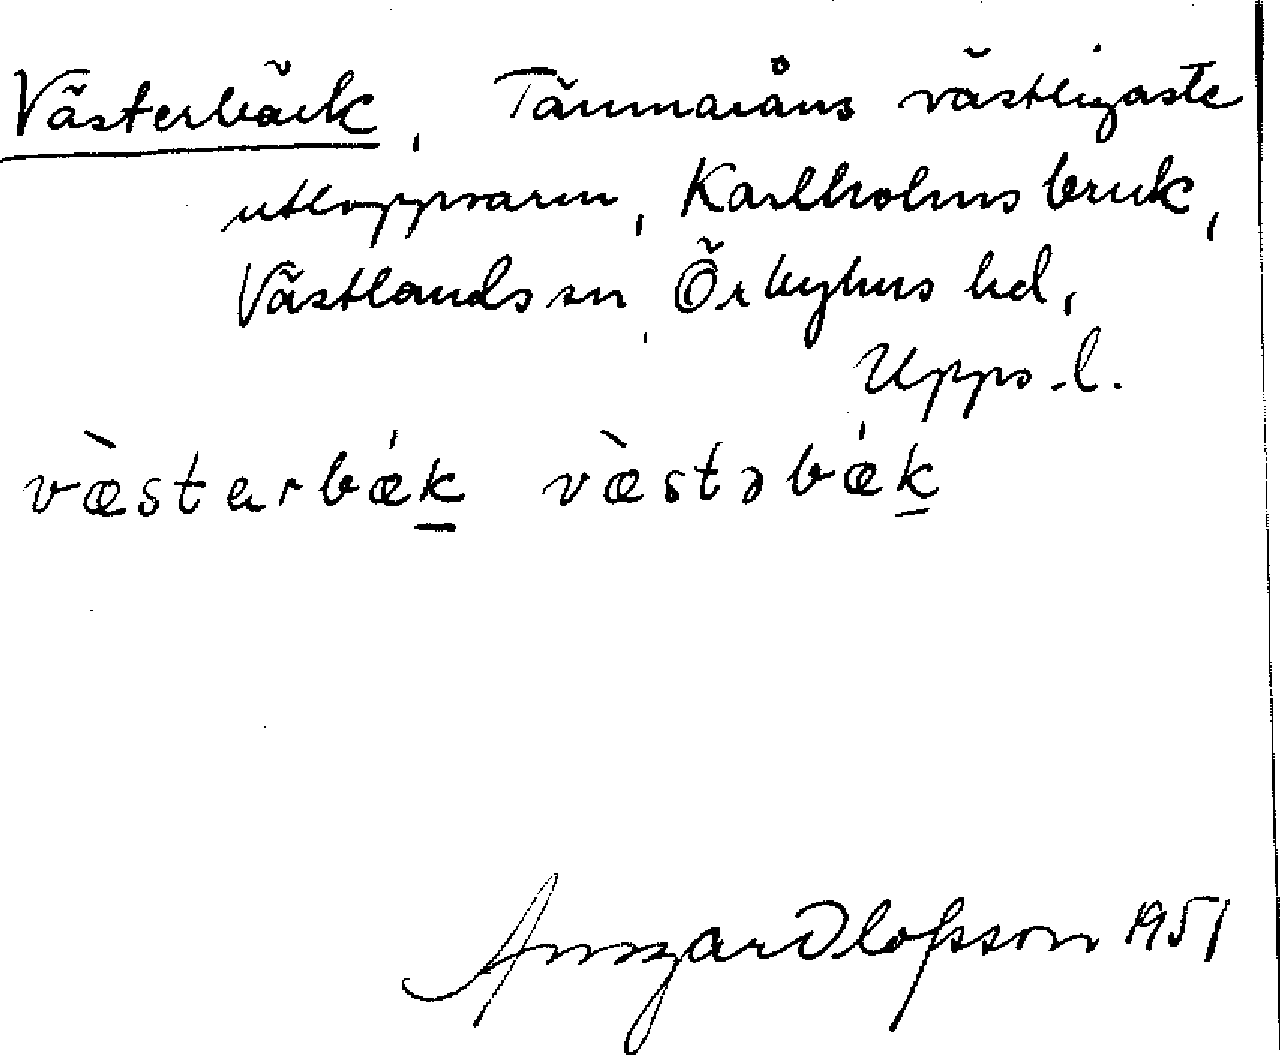 Västerbäck, Tämnaråns västligaste
utloppsarm, Karlholms bruk,
Västlands sn, Örbyhus hd,
Upps. l.
væ̀stærbǽk væ̀stəbǽk
Ansgar Olofsson 1951